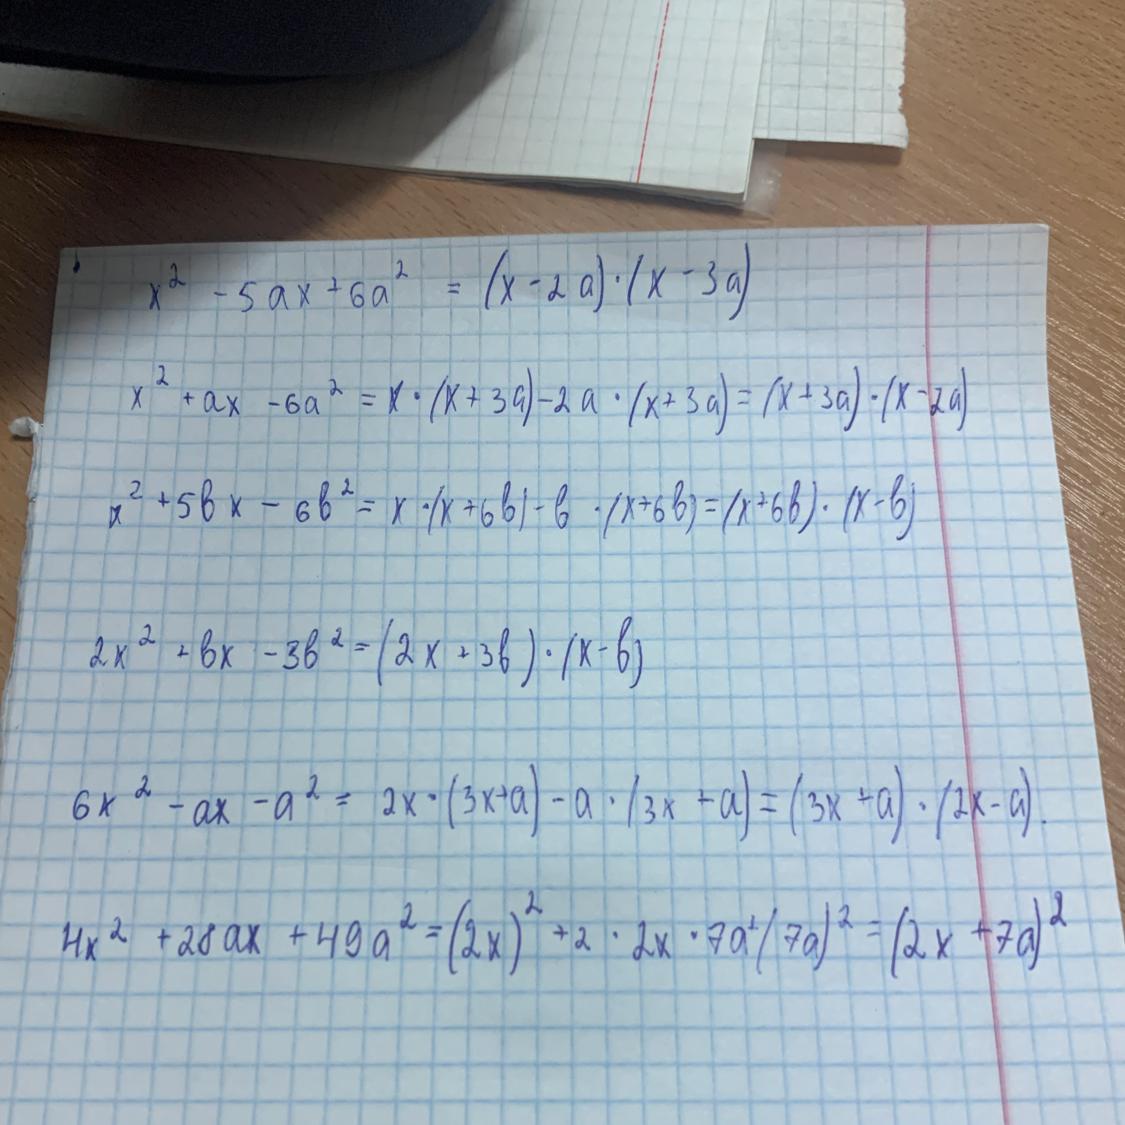 x² - 5ax + 6a² = (x - 2a)·(x - 3a)
x² + ax - 6a² = x·(x + 3a) - 2a·(x + 3a) = (x + 3a)·(x - 2a)
x² + 5bx - 6b² = x·(x + 6b) - b·(x + 6b) = (x + 6b)·(x - b)
2x² + bx - 3b² = (2x + 3b)·(x - b)
6x² - ax - a² = 2x·(3x + a) - a·(3x + a) = (3x + a)·(2x - a).
4x² + 28ax + 49a² = (2x)² + 2·2x·7a + (7a)² = (2x + 7a)²